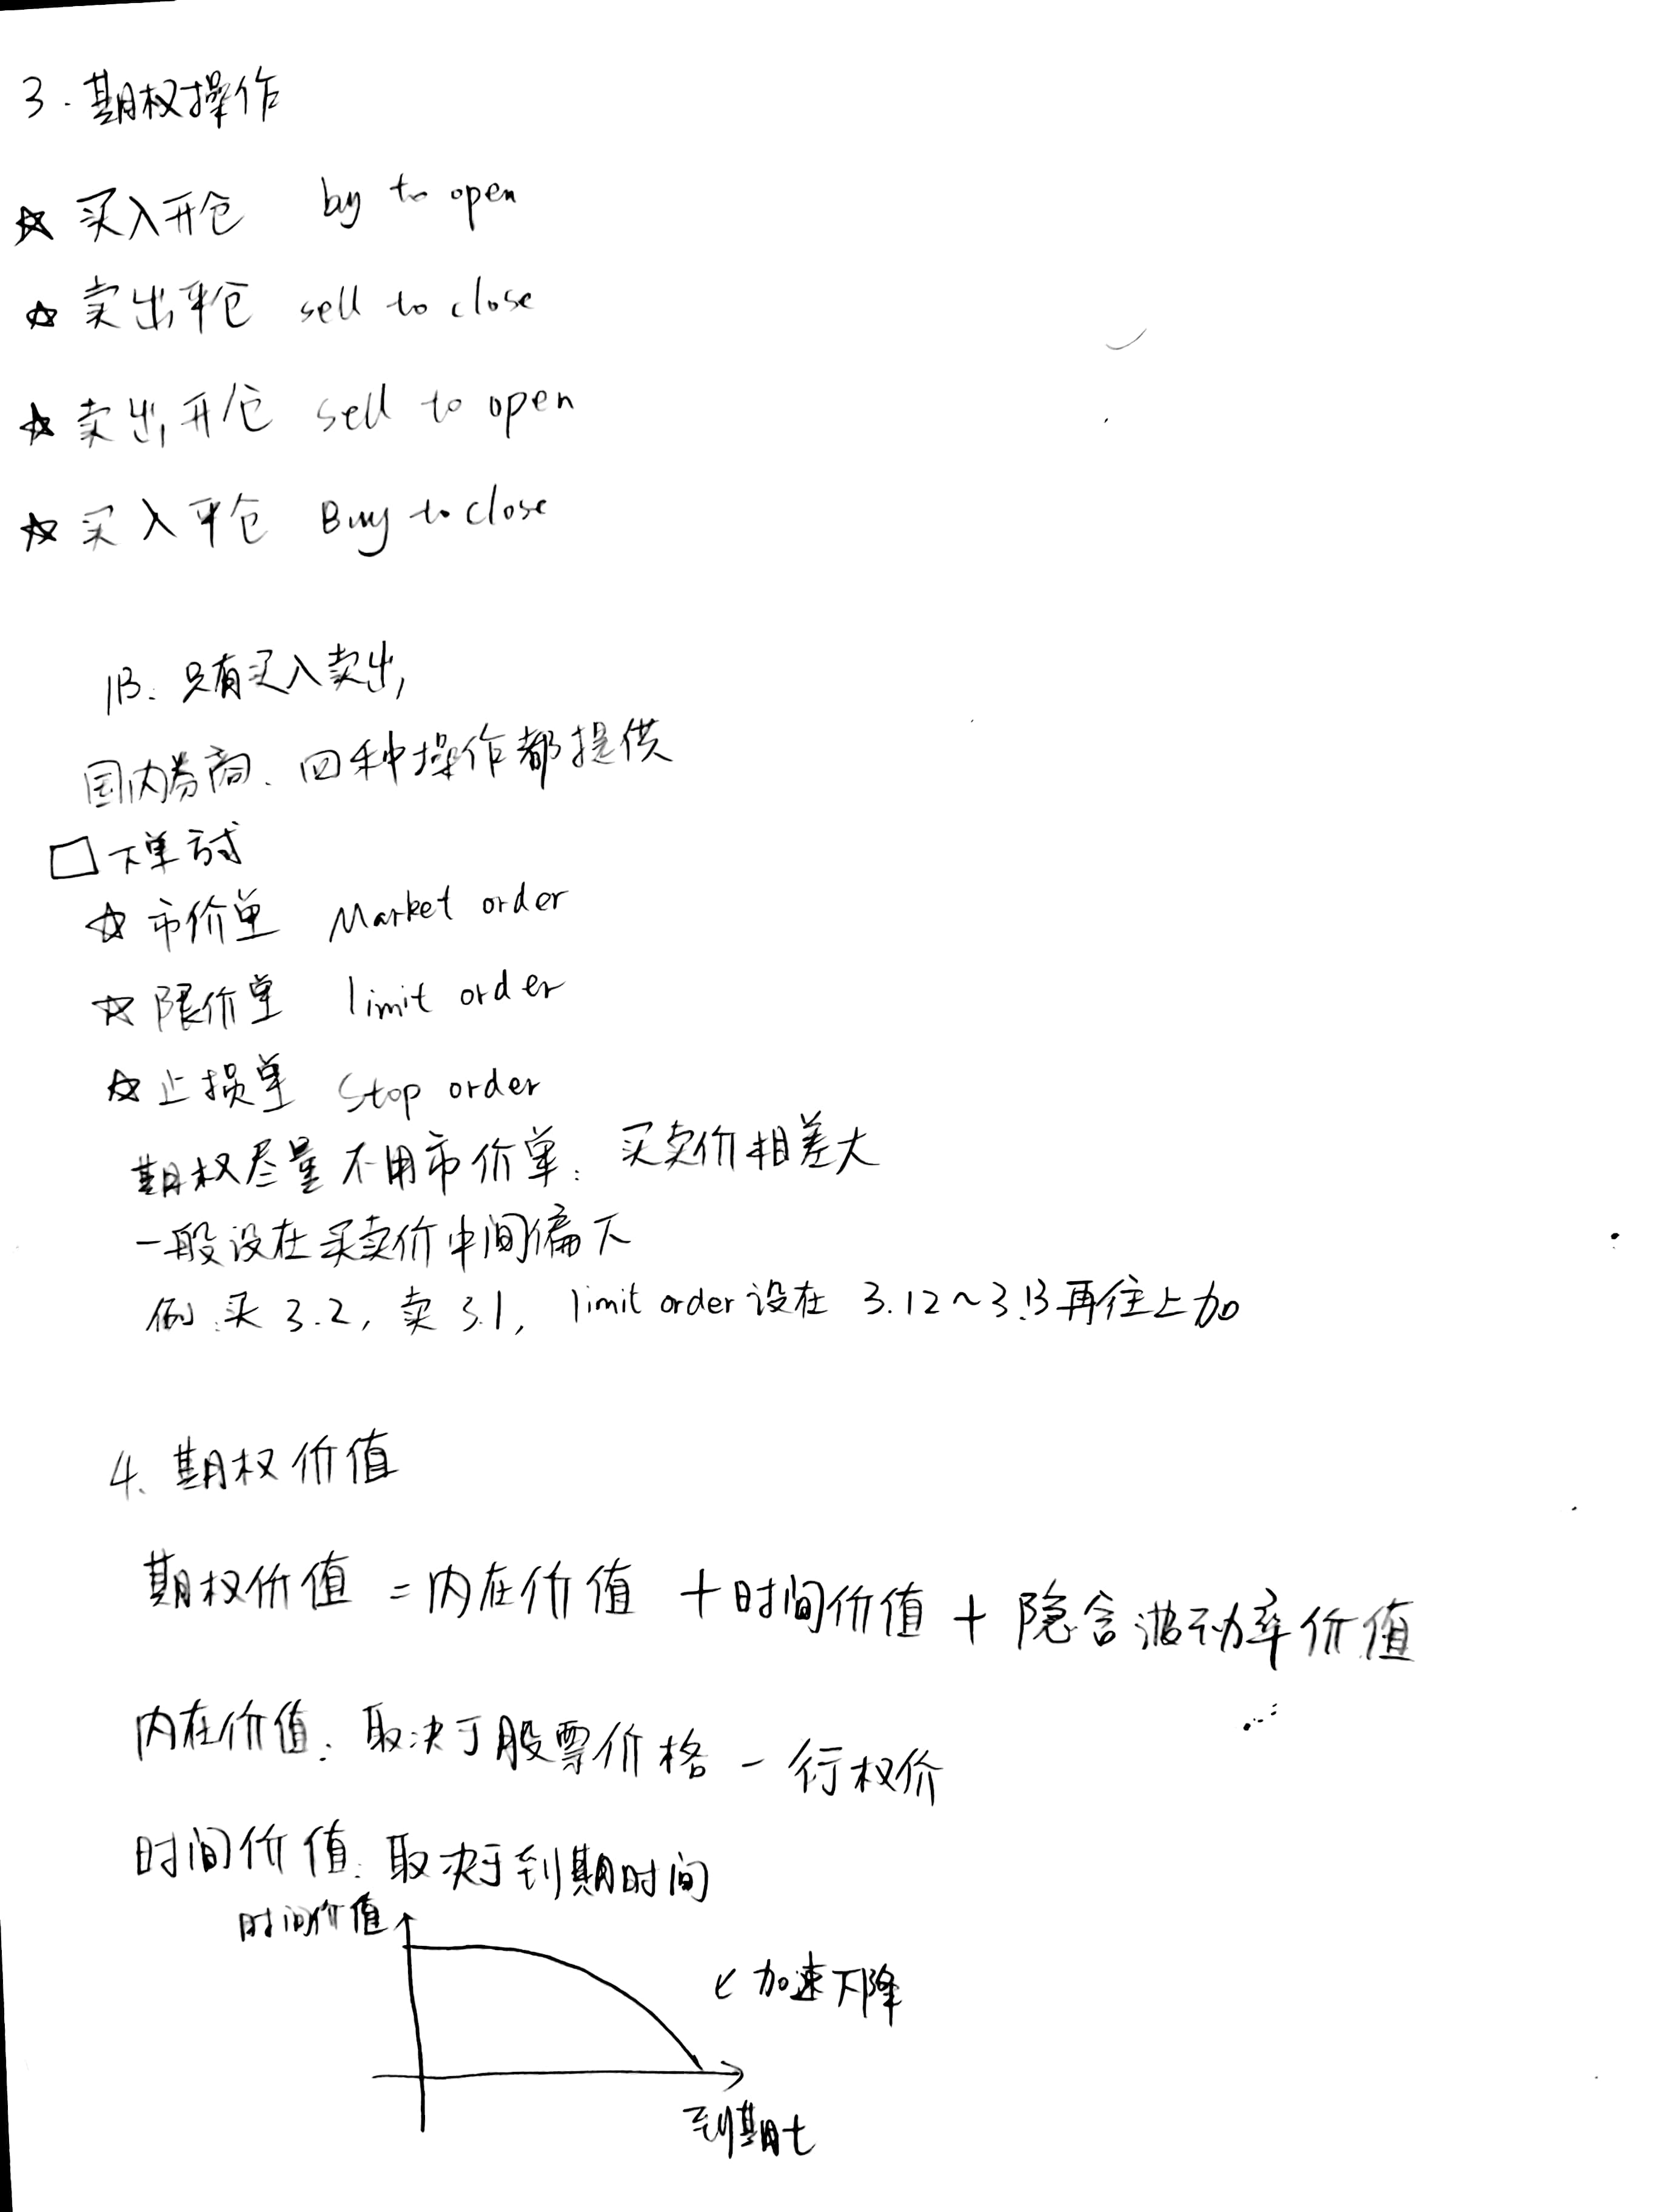 3. 期权操作
☆ 买入开仓 by to open
☆ 卖出平仓 sell to close
☆ 卖出开仓 sell to open
☆ 买入平仓 Buy to close
IB: 只有买入卖出,
国内券商、四种操作都提供
□ 下单方式
☆ 市价单 Market order
☆ 限价单 limit order
☆ 止损单 Stop order
期权尽量不用市价单: 买卖价相差大
一般设在买卖价中间偏下
例:买 3.2, 卖 3.1, limit order 设在 3.12~3.13 再往上加
4. 期权价值
期权价值 = 内在价值 + 时间价值 + 隐含波动率价值
内在价值: 取决于股票价格 - 行权价
时间价值: 取决于到期时间
时间价值
加速下降
到期t